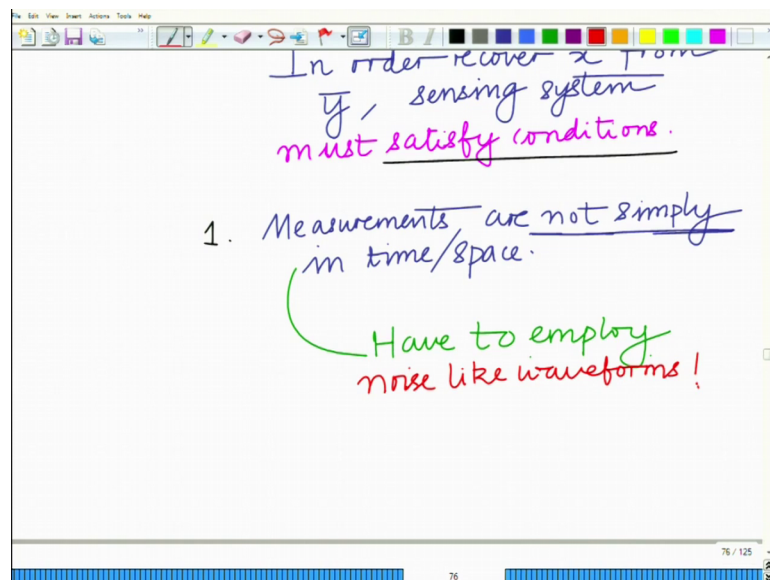 File Edit View Insert Actions Tools Help
B I
In order recover x from
y, sensing system
must satisfy conditions.
1. Measurements, are not simply
in time/space.
Have to employ
noise like waveforms!
76 / 125
76